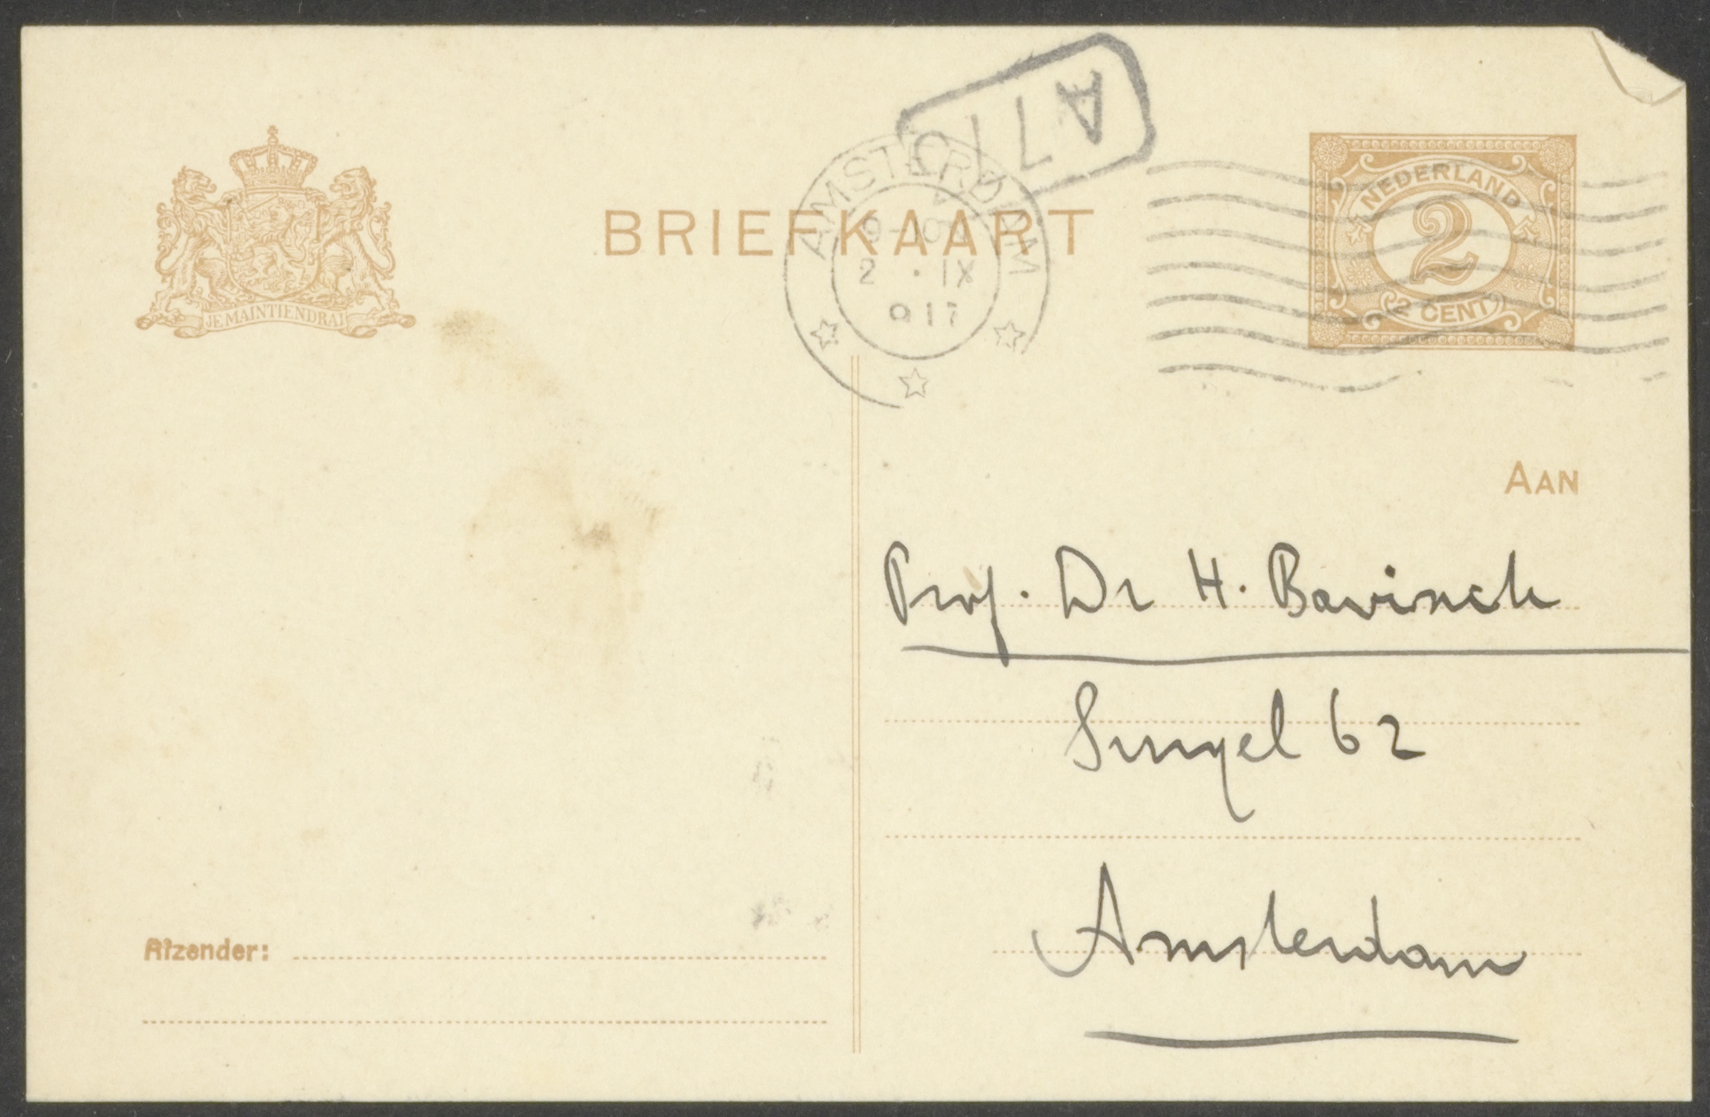 A7
AMSTERDAM
BRIEFKAART
9-10V
2 · IX
917
NEDERLAND
2
2 CENT
JE MAINTIENDRAI
AAN
Prof. Dr H. Bavinck
Singel 62
Amsterdam
Afzender: